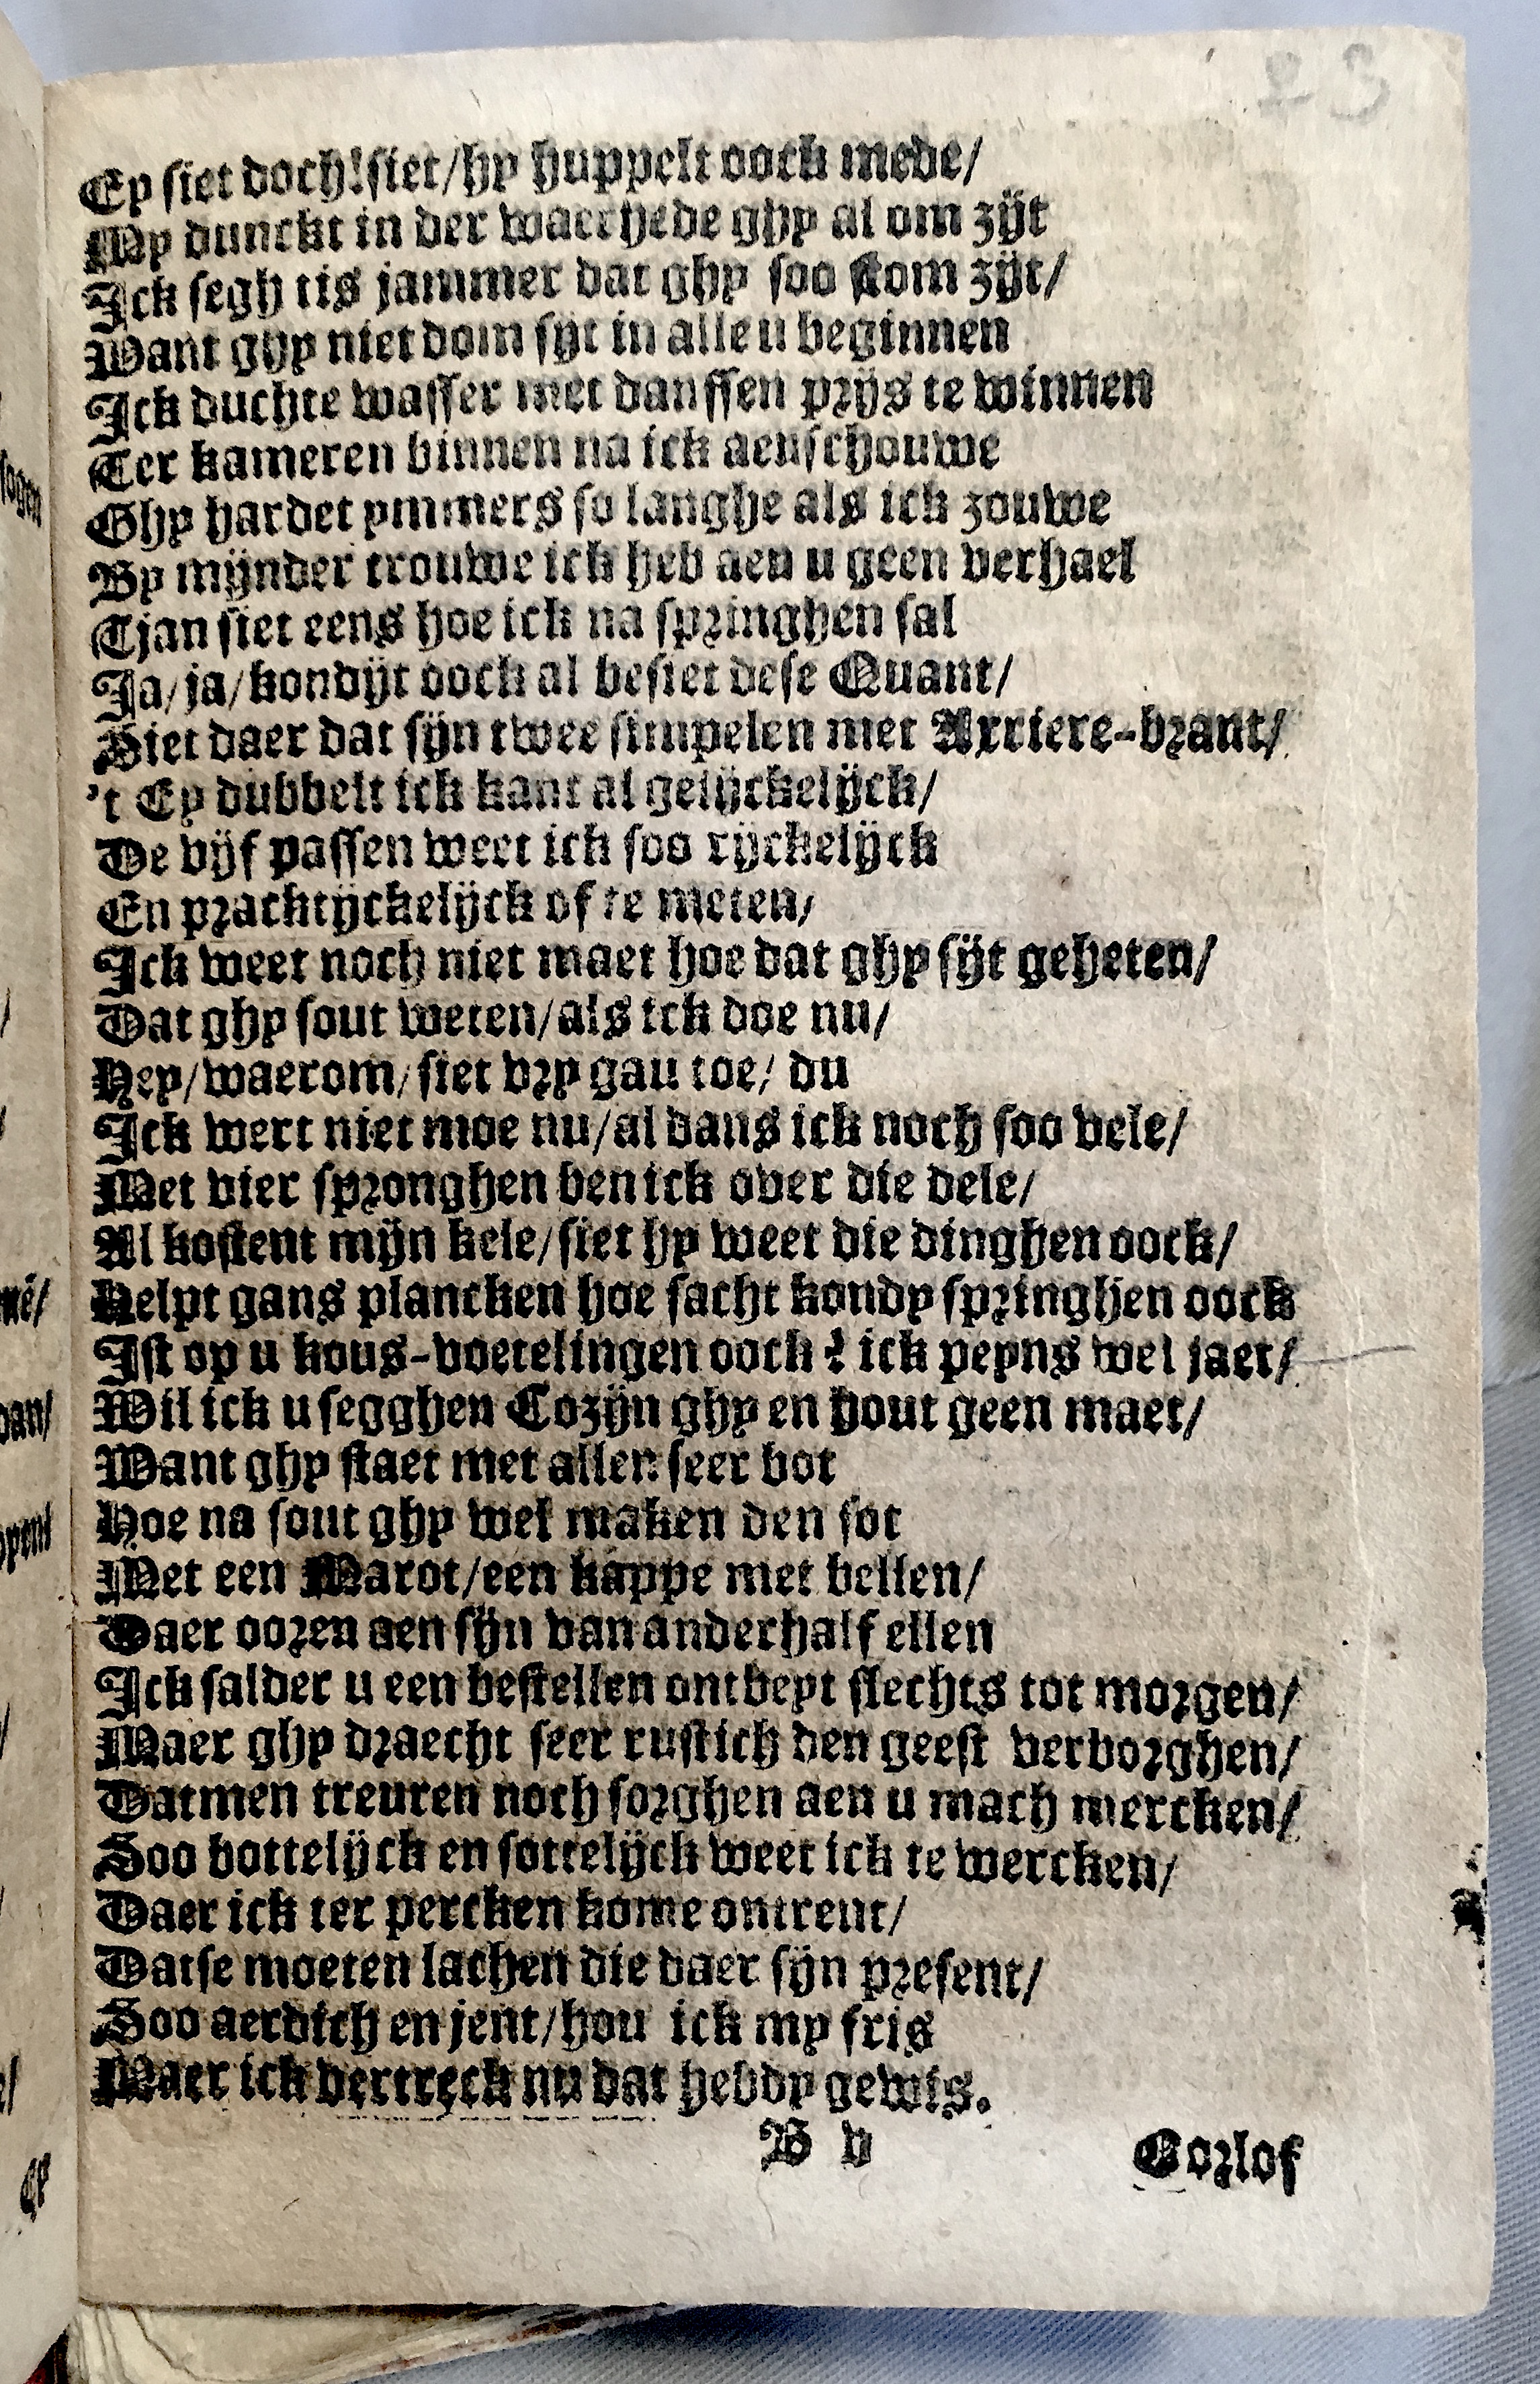 23
Ey siet doch! siet/hy huppelt oock mede/
My dunckt in der waerhede ghy al om zijt
Ick segh tis jammer dat ghy soo stom zijt/
Want ghy niet dom sijt in alle u beginnen
Ick duchte wasser met danssen prijs te winnen
Ter kameren binnen na ick aenschouwe
Ghy hardet ymmers so langhe als ick zouwe
By mijnder trouwe ick heb aen u geen verhael
Tjan siet eens hoe ick na springhen sal
Ja/ja/kondijt oock al besiet dese Quant/
Siet daer dat sijn twee simpelen met Arriere-brant/
't Ey dubbelt ick kant al gelijckelijck/
De vijf passen weet ick soo rijckelijck
En pracktijckelijck of te meten/
Ick weet noch niet maet hoe dat ghy sijt geheten/
Dat ghy sout weten/als ick doe nu/
Hey/waerom/siet vry gau toe/ du
Ick wert niet moe nu/al dans ick noch soo vele/
Met vier spronghen ben ick over die dele/
Al kostent mijn kele/siet hy weet die dinghen oock/
Helpt gans plancken hoe sacht kondy springhen oock
Ist op u kous-voetelingen oock? ick peyns wel jaet/
Wil ick u segghen Cozijn ghy en hout geen maet/
Want ghy staet met allen seer bot
Hoe na sout ghy wel maken den sot
Met een Marot/een kappe met bellen/
Daer ooren aen sijn van anderhalf ellen
Ick salder u een bestellen ontbeyt slechts tot morgen/
Maer ghy draecht seer rustich den geest verborghen/
Datmen treuren noch sorghen aen u mach mercken/
Soo bottelijck en sottelijck weet ick te wercken/
Daer ick ter percken kome ontrent/
Datse moeten lachen die daer sijn present/
Soo aerdich en jent/hou ick my fris
Maer ick vertreck nu dat hebdy gewis.
B v
Oorlof